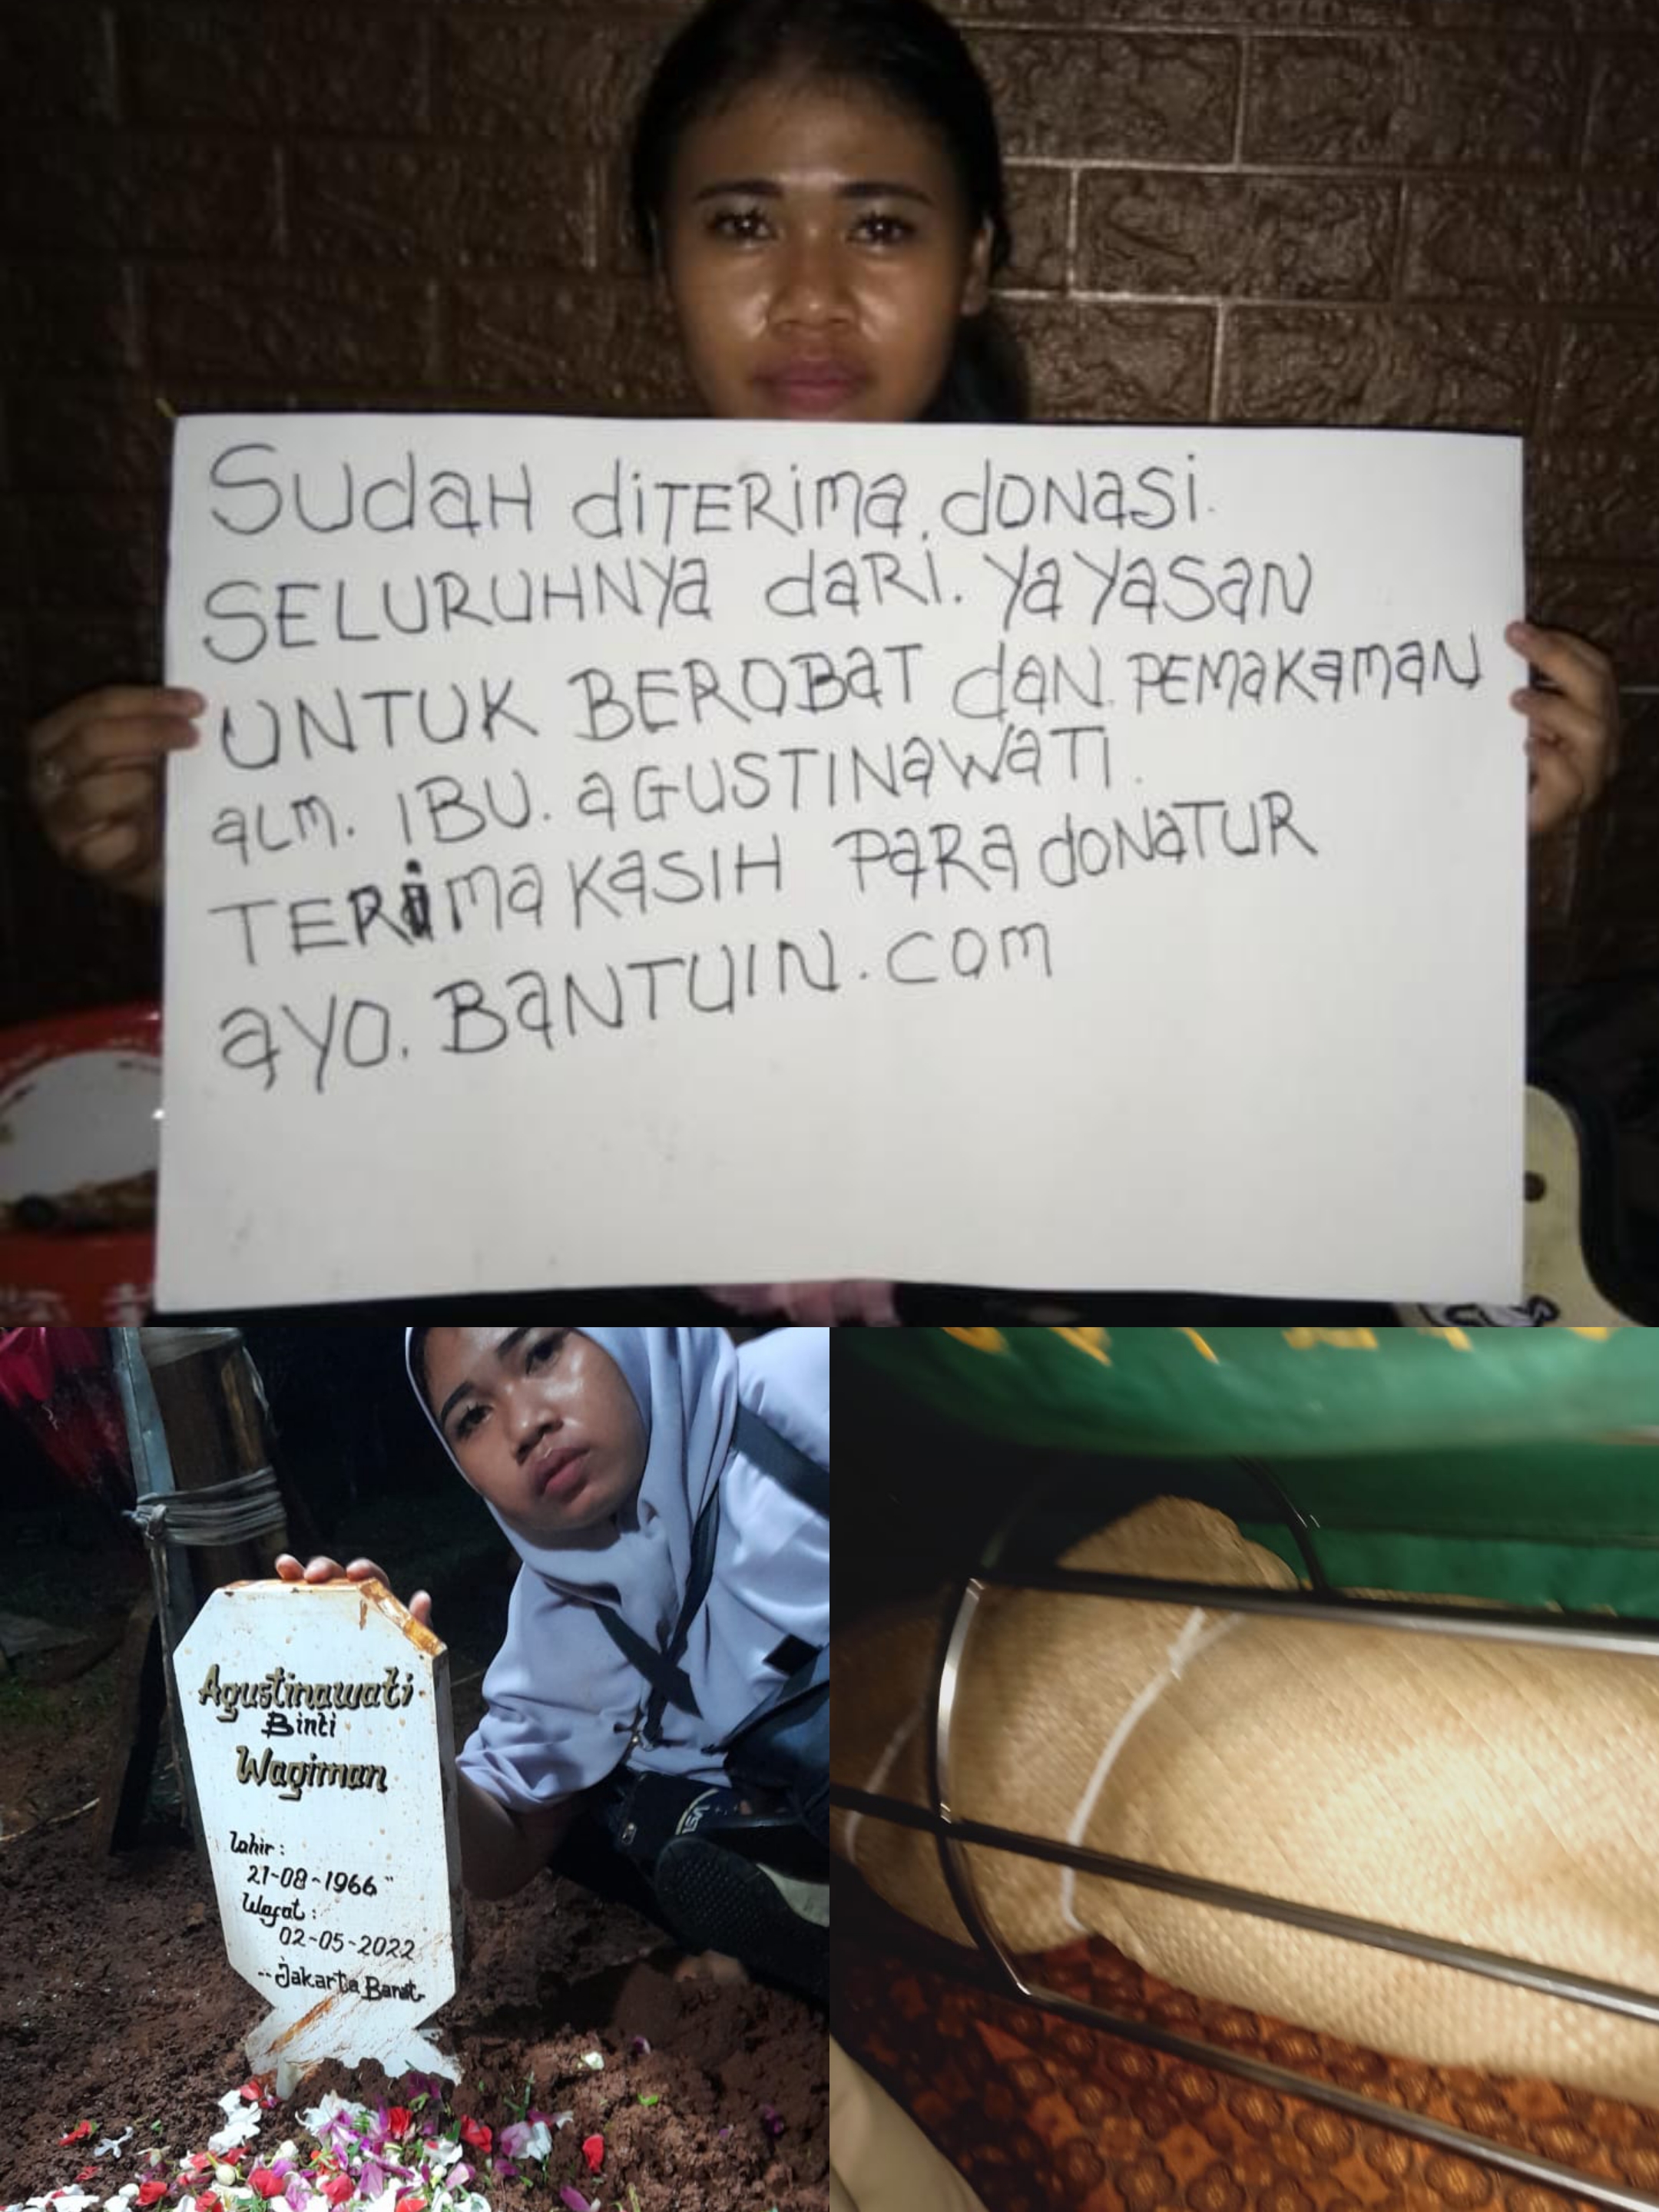 SUdaH diTERima. dONasi.
SELURUHNYa daRi. YaYaSaN
UNTUK BEROBaT daN. PEMaKamaN
aLm. IBU. aGUSTINaWaTi.
TERima KaSIH PaRa doNaTUR
aYO. BaNTUIN. com
Agustinawati
Binti
Wagiman
Lahir :
21-08-1966
Wafat :
02-05-2022
Jakarta Barat